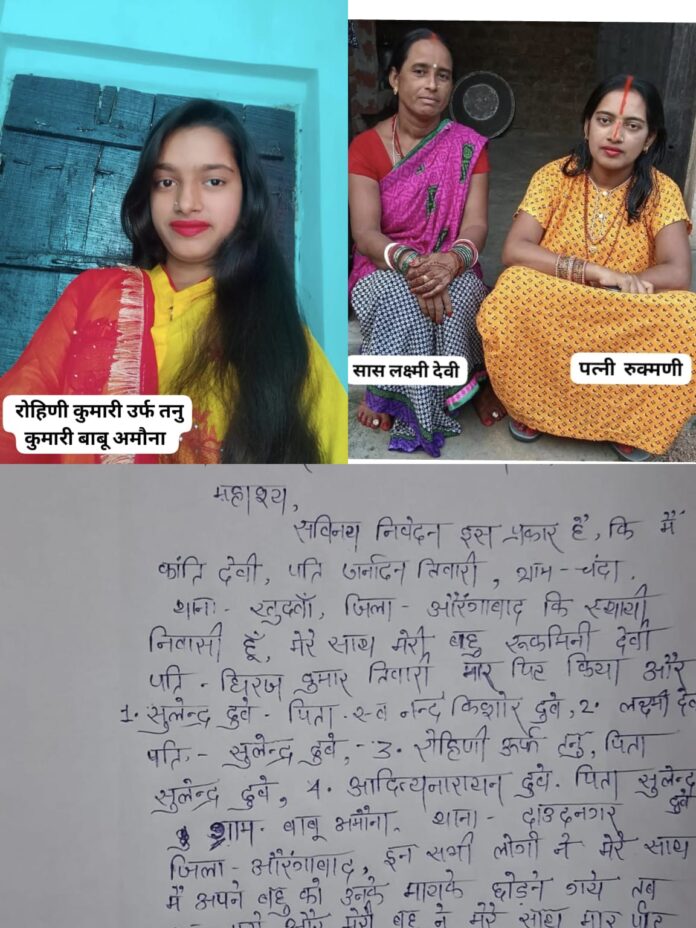 रोहिणी कुमारी उर्फ तनु
कुमारी बाबू अमौना
सास लक्ष्मी देवी
पत्नी रुक्मणी
महाश्य,
सविनय निवेदन इस प्रकार है, कि मैं
कांति देवी, पति जर्नादन तिवारी, ग्राम - चंदा,
थाना - खुदवाँ, जिला - औरंगाबाद कि स्थायी
निवासी हूँ, मेरे साथ मेरी बहु रूकमिनी देवी
पति - धिरज कुमार तिवारी मार पिट किया और
1. सुलेन्द्र दुवे - पिता स्व नन्द किशोर दुवे, 2. लक्ष्मी देव
पति - सुलेन्द्र दुवे, - 3. रोहिणी ऊर्फ तनु, पिता
सुलेन्द्र दुवे, 4. आदित्यनारायन दुवे - पिता सुलेन्द्र
दुवे
ग्राम - बाबू अमौना, थाना - दाउदनगर
जिला - औरंगावाद, इन सभी लोगों ने मेरे साथ
मैं अपने बहु को उनके मायके छोड़ने गये तब
और मेरी बहु ने मेरे साथ मार पीट